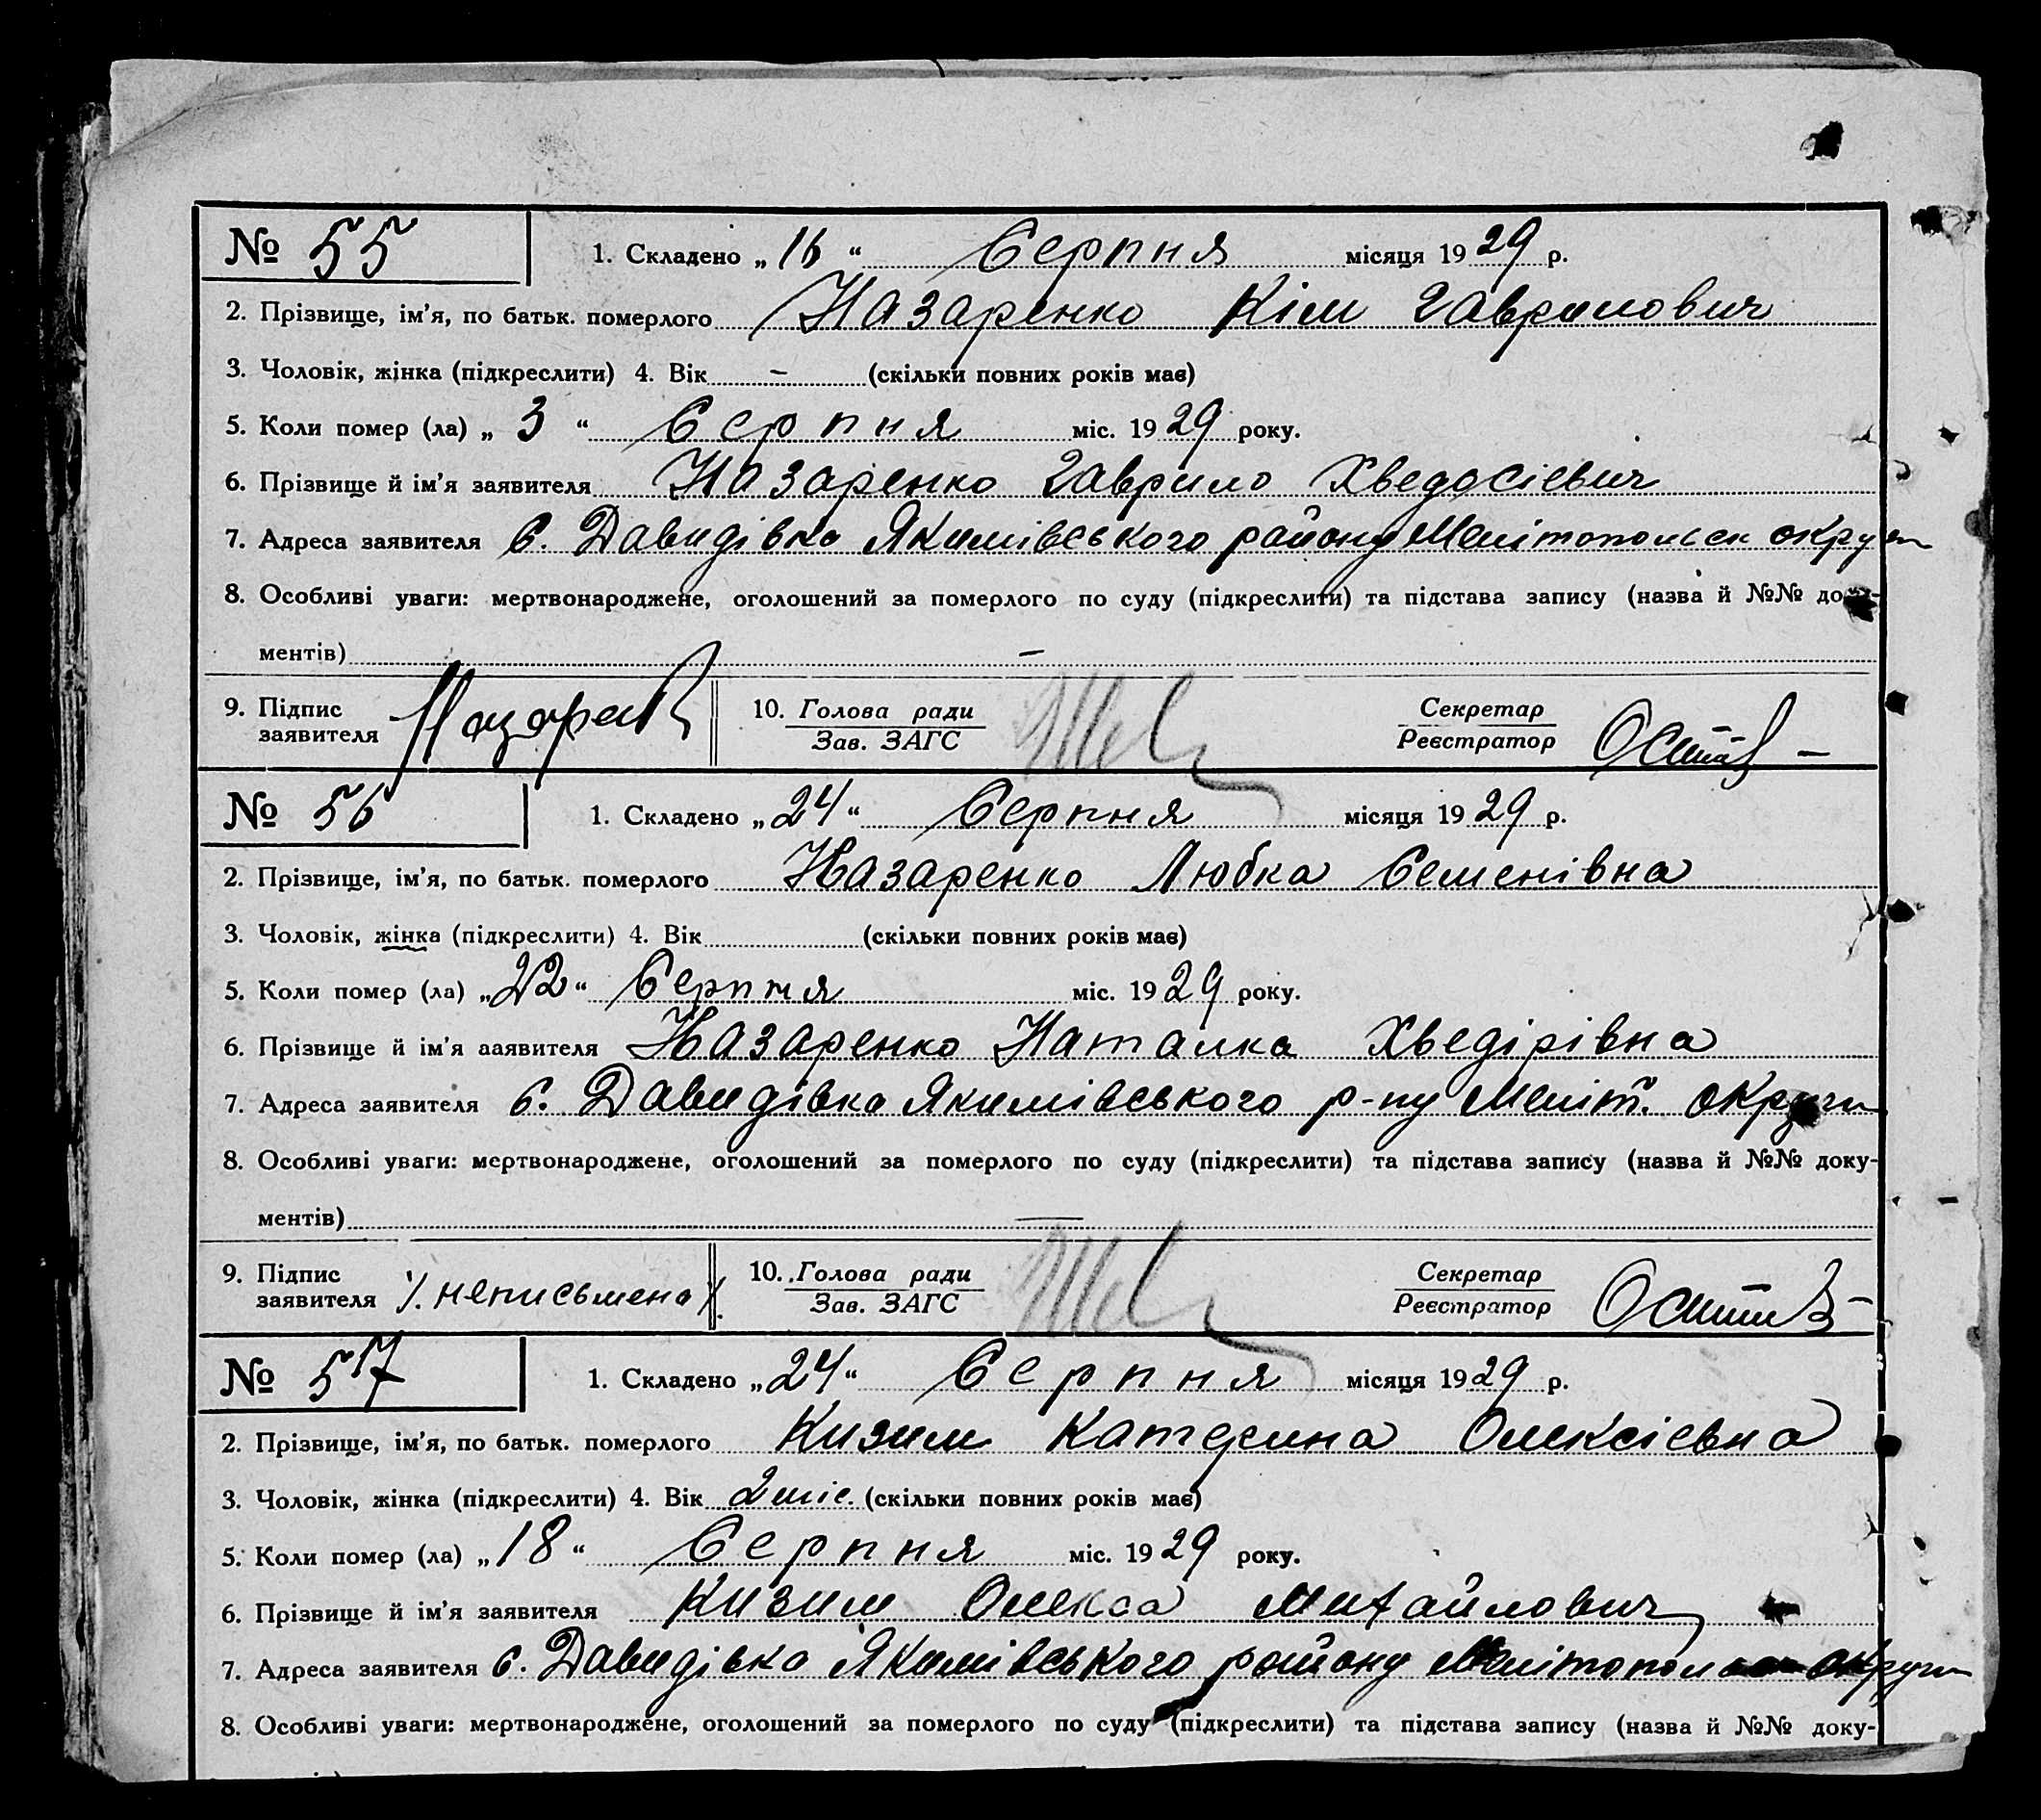 № 55 1. Складено „ 16 “ Серпня місяця 1929 р.
2. Прізвище, ім'я, по батьк. померлого Назаренко Кім Гаврилович
3. Чоловік, жінка (підкреслити) 4. Вік - (скільки повних років має)
5. Коли помер (ла) „ 3 “ Серпня міс. 1929 року.
6. Прізвище й ім'я заявителя Назаренко Гаврило Хведосієвич
7. Адреса заявителя с. Давидівка Якимівського району Мелітопольск округи
8. Особливі уваги: мертвонароджене, оголошений за померлого по суду (підкреслити) та підстава запису (назва й №№ до
ментів) —
9. Підпис заявителя 10. Голова ради Зав. ЗАГС Секретар Реєстратор
№ 56 1. Складено „24“ Серпня місяця 1929 р.
2. Прізвище, ім'я, по батьк. померлого Назаренко Любка Семенівна
3. Чоловік, жінка (підкреслити) 4. Вік (скільки повних років має)
5. Коли помер (ла) „22“ Серпня міс. 1929 року.
6. Прізвище й ім'я ааявителя Назаренко Наталка Хведірівна
7. Адреса заявителя с. Давидівка Якимівського р-ну Меліт. округи
8. Особливі уваги: мертвонароджене, оголошений за померлого по суду (підкреслити) та підстава запису (назва й №№ доку-
ментів) —
9. Підпис заявителя неписьмена 10. Голова ради Зав. ЗАГС Секретар Реєстратор
№ 57 1. Складено „24“ Серпня місяця 1929 р.
2. Прізвище, ім'я, по батьк. померлого Кизим Катерина Олексієвна
3. Чоловік, жінка (підкреслити) 4. Вік 2 міс. (скільки повних років має)
5. Коли помер (ла) „18“ Серпня міс. 1929 року.
6. Прізвище й ім'я заявителя Кизим Олекса Михайлович
7. Адреса заявителя с. Давидівка Якимівського району округи
8. Особливі уваги: мертвонароджене, оголошений за померлого по суду (підкреслити) та підстава запису (назва й №№ доку-